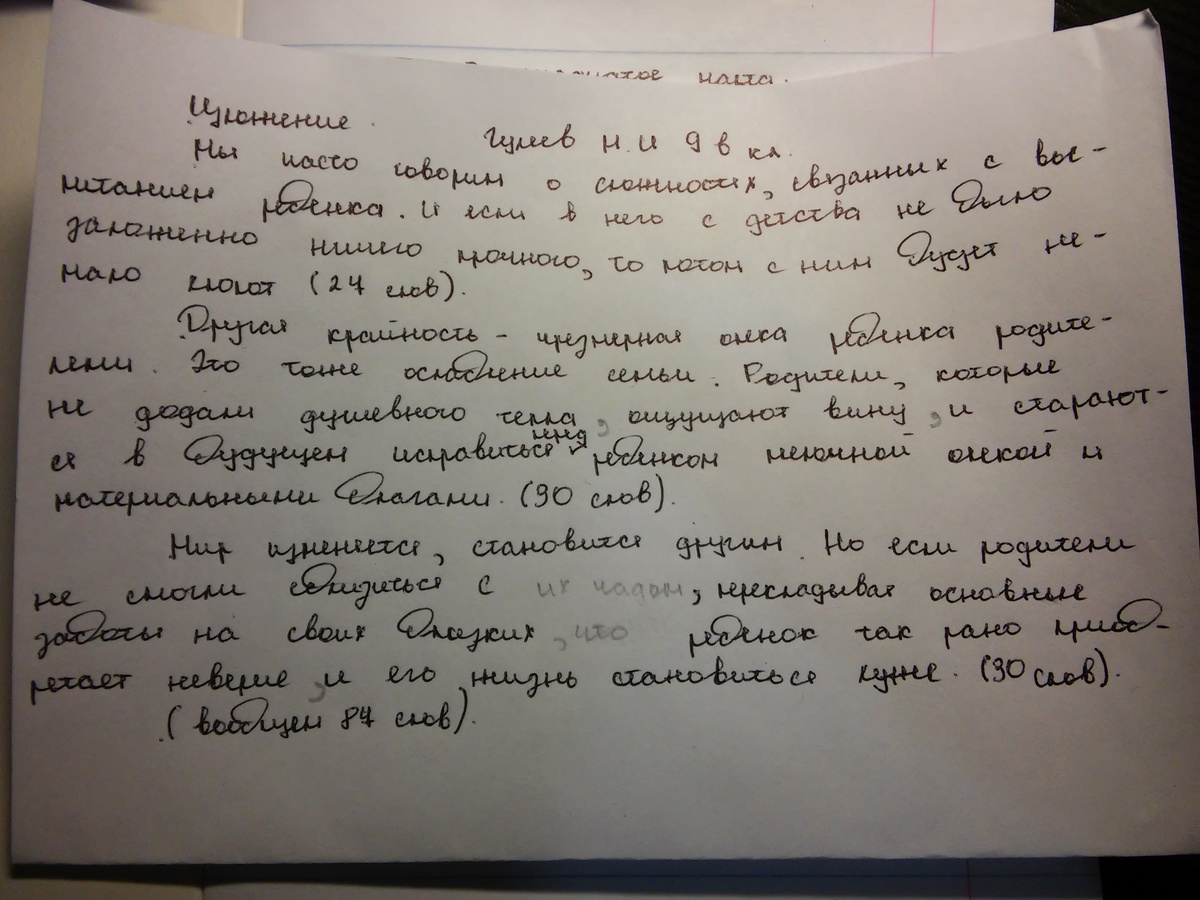 наста.
Изложение.
Гулиев Н.И 9 в кл.
Мы часто говорим о сложностях, связанных с вос-
питанием ребенка. И если в него с детства не было
заложенно ничего прочного, то потом с ним будет не-
мало хлопот (24 слов).
Другая крайность – чрезмерная опека ребенка родите-
лями. Это тоже ослабление семьи. Родители, которые
не додали душевного тепла, ощущают вину, и старают-
ся в будущем исправиться перед ребенком мелочной опекой и
материальными благами. (30 слов).
Мир изменяется, становится другим. Но если родители
не смогли сблизиться с их чадом, перекладывая основные
заботы на своих близких, что ребенок так рано приоб-
ретает неверие, и его жизнь становиться хуже. (30 слов).
(вообщем 84 слов).